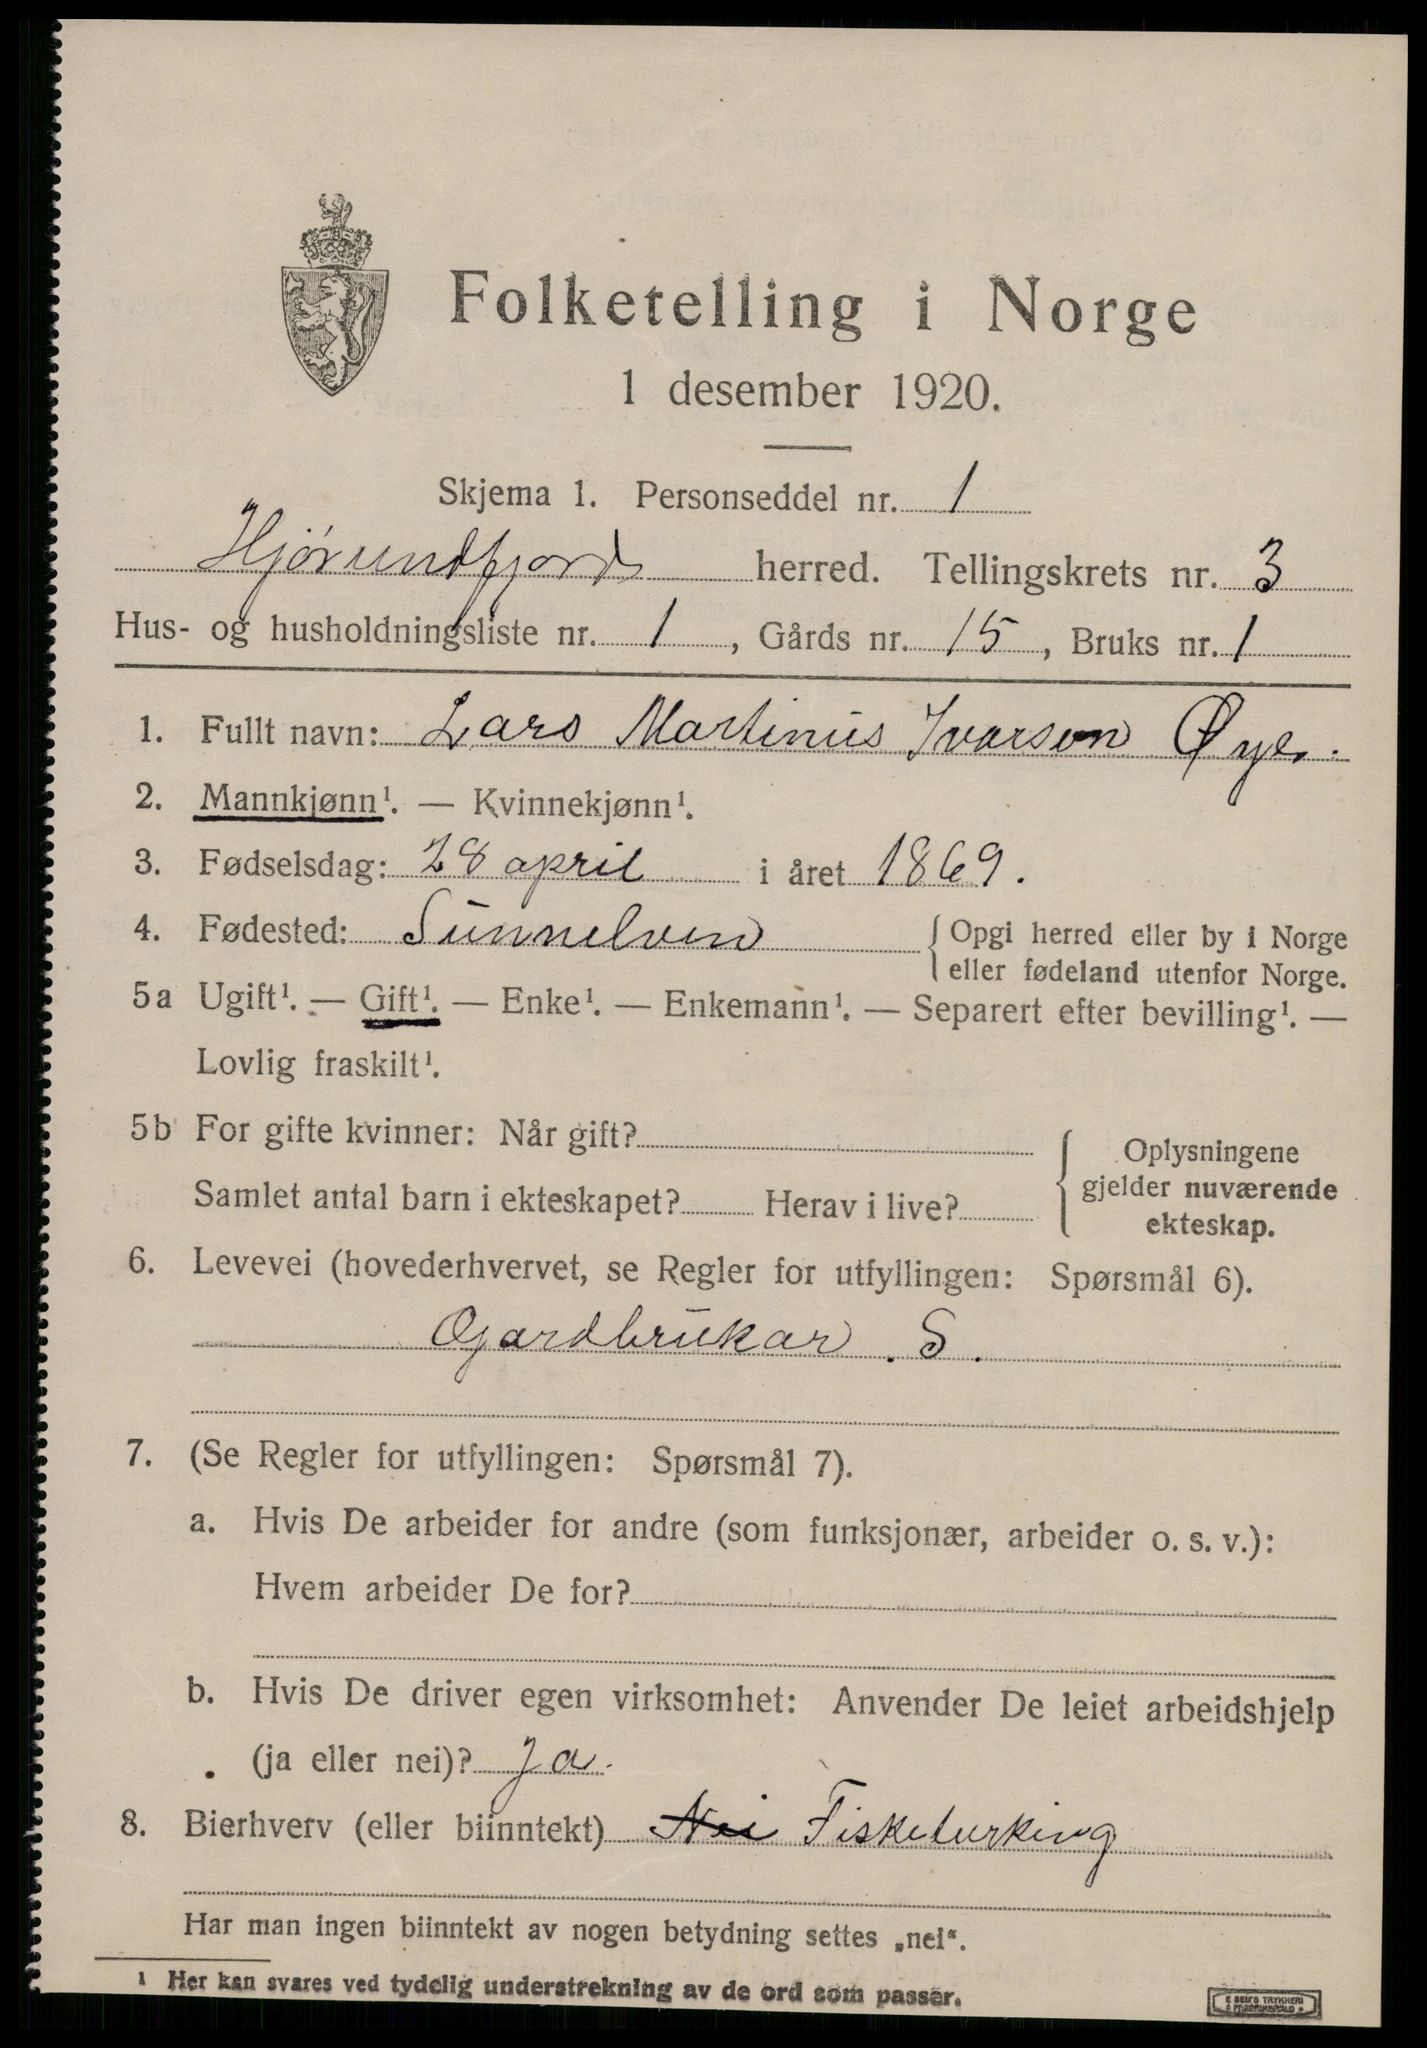 Folketelling i Norge
1 desember 1920.
Skjema 1. Personseddel nr. 1
Hjørundfjord herred. Tellingskrets nr. 3
Hus- og husholdningsliste nr. 1, Gårds nr. 15, Bruks nr. 1
1. Fullt navn: Lars Martinus Ivarson Øye.
2. Mannkjønn¹. — Kvinnekjønn¹.
3. Fødselsdag: 28 april i året 1869.
4. Fødested: Sunnelven { Opgi herred eller by i Norge
eller fødeland utenfor Norge.
5a Ugift¹. — Gift¹. — Enke¹. — Enkemann¹. — Separert efter bevilling¹. —
Lovlig fraskilt¹.
5b For gifte kvinner: Når gift?
Samlet antal barn i ekteskapet? Herav i live?
{ Oplysningene
gjelder nuværende
ekteskap.
6. Levevei (hovederhvervet, se Regler for utfyllingen: Spørsmål 6).
Gardbrukar. S.
7. (Se Regler for utfyllingen: Spørsmål 7).
a. Hvis De arbeider for andre (som funksjonær, arbeider o. s. v.):
Hvem arbeider De for?
b. Hvis De driver egen virksomhet: Anvender De leiet arbeidshjelp
(ja eller nei)? Ja.
8. Bierhverv (eller biinntekt) Nei Fisketurking
Har man ingen biinntekt av nogen betydning settes „nei“.
¹ Her kan svares ved tydelig understrekning av de ord som passer.
E SEM'S TRYKKERI